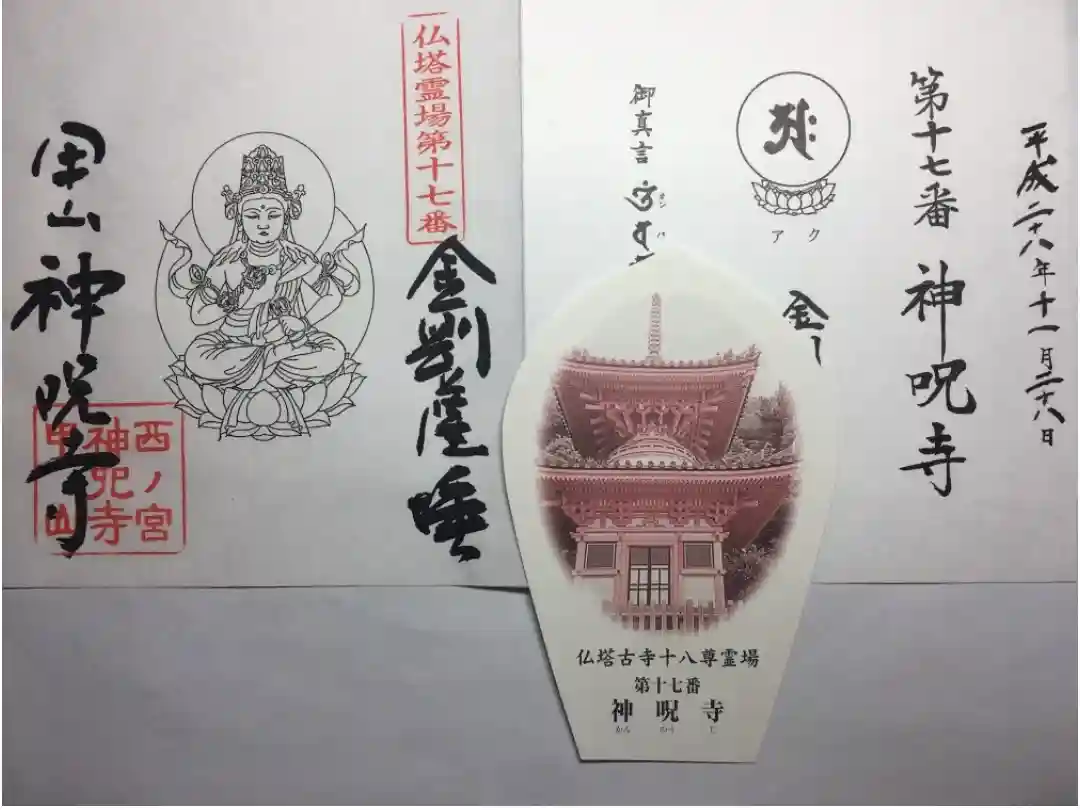 平成二十八年十一月二十八日
第十七番 神呪寺
アク
金
御真言
オン バ
仏塔霊場第十七番
金剛薩埵
甲山神呪寺
西ノ宮
神呪寺
甲山
仏塔古寺十八尊霊場
第十七番
神呪寺
かんのうじ